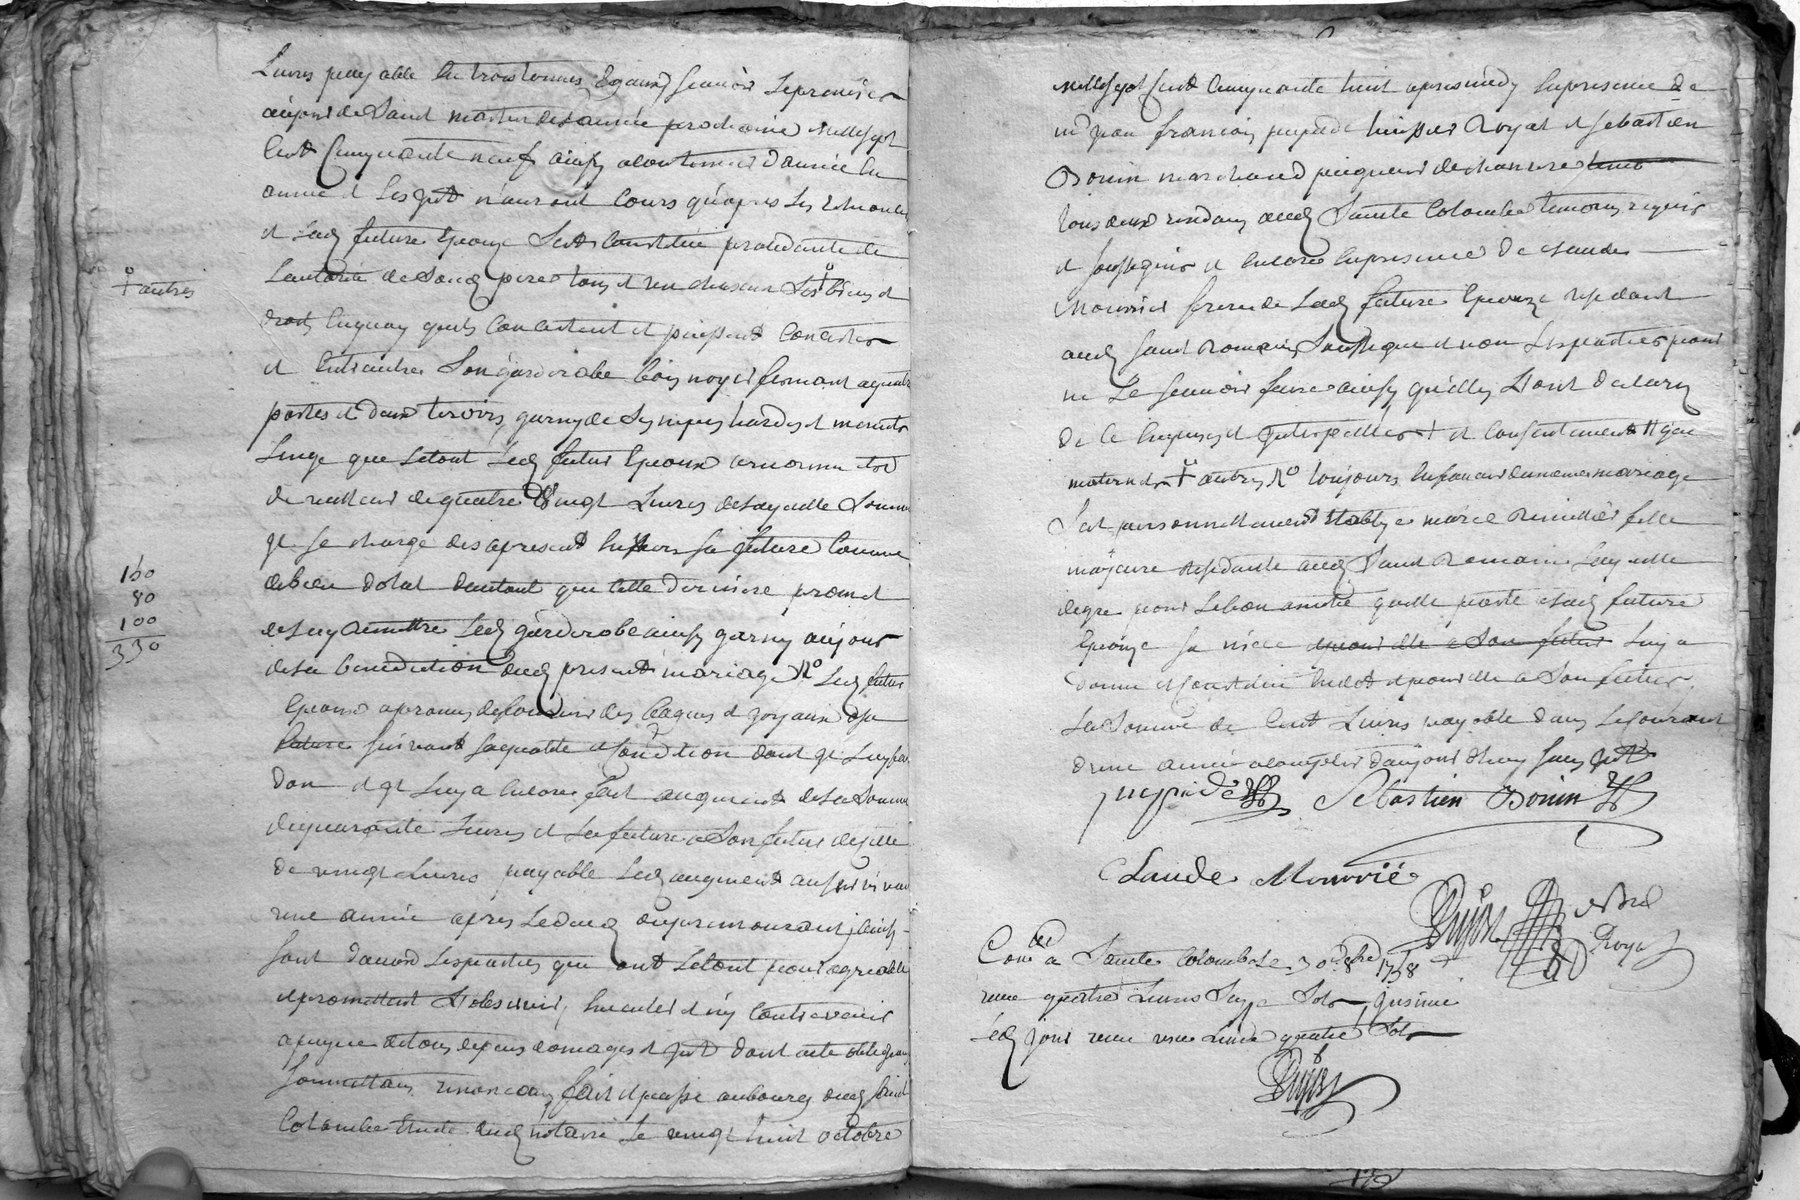 Livres payable en trois termes Egaux scavoir le premier
au jour de Saint martin de l'année prochaine mille sept
Cent Cinquante neuf ainsy a Continuer d'année En
année et Les jnt n'auront Cours qu'apres Les Echeances
et Lad future Epouze s'est Constituée procedante de
L'autorité de Sond pere tous et un chacun ses † biens et
† autres
droits Enquoy quils Consistent et puissent Consister
et Entr'autre Son garderobe bois noyer fermant a quatre
portes et deux tiroirs, garny de Ses nipes hardes et menuts
Linge que
Led futur Epoux
de valleur de quatre vingt Livres de laquelle Somme
jl se charge des apresent Envers Sa future Comme
de bien dotal dautant que Cette derniere promet
de luy Remettre Led garderobe ainsy garny au jour
de la benediction dud present mariage No Led futur
150
80
100
330
Epoux a promis de fournir des Bagues et joyaux a sa
future suivant sa qualité et Condition dont jl Luy fai
don et jl Luy a Encore fait augment de la Somme
de quarante Livres et La future a Son futur de celle
de vingt Livres payable Led augment au survivant
une année apres Le deces du premourant, Ainsy
sont d'accord Lesparties que ont Le tout pour agreable
et promettent L'observer, et n'y Contrevenir
a peyne de tous depens domages et jnt dont acte obligeans
Soumettans renoncans fait et passé au bourg dud Saint
Colombe Etude dud notaire Le vingt huit octobre
mille sept Cent Cinquante huit apres midy En presence de
me jean francois huissier Royal et Sebastien
Bonin marchand peigneur de chanvre
tous deux rendans aud Sainte Colombe temoins requis
et soussignés et Encore En presence de claude
Mourrier frere de Lad future Epouze residant
aud Saint Romain Soussigné et non Les parties pour
ne Le scavoir faire ainsy qu'elles L'ont declaré
de Ce Enquis et Jnterpellés † et Consentement
maternel † autres No toujours En faveur du meme mariage
s'est personnellement Etablye marie fille
majeure residante aud Saint Romain Laquelle
de gré pour Le bon amitié qu'elle porte a Lad future
Epouze sa niece pour elle a Son futur Luy a
donné et Constitué En dot et pour elle a Son futur
La Somme de Cent Livres payable dans Le Courant
d'une année a Compter d'aujourd'huy sans jnt
Sebastien Bonin
Claude Mourrié
Royal
Coné a Sainte Colombe Le 30 8bre 1758
receu quatre Livres Seize Sols, jnsinué
Led jour receu une Livre quatre Sols